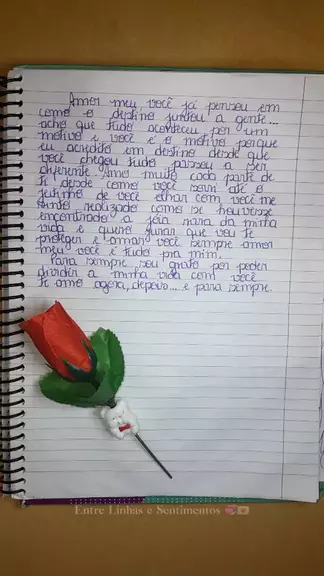 Amor meu, você já pensou em
como o destino juntou a gente...
acho que tudo aconteceu por um
motivo e você é o motivo porque
eu acredito em destino desde que
você chegou tudo passou a ser
diferente. Amo muito cada parte de
ti desde como você sorri até o
jeitinho de você olhar com você me
sinto realizado como se houvesse
encontrado a jóia rara da minha
vida e quero jurar que vou te
proteger e amar você sempre amor
meu você é tudo pra mim.
Para sempre sou grato por poder
dividir a minha vida com você
te amo agora, depois... e para sempre.
Entre Linhas e Sentimentos 💞💌